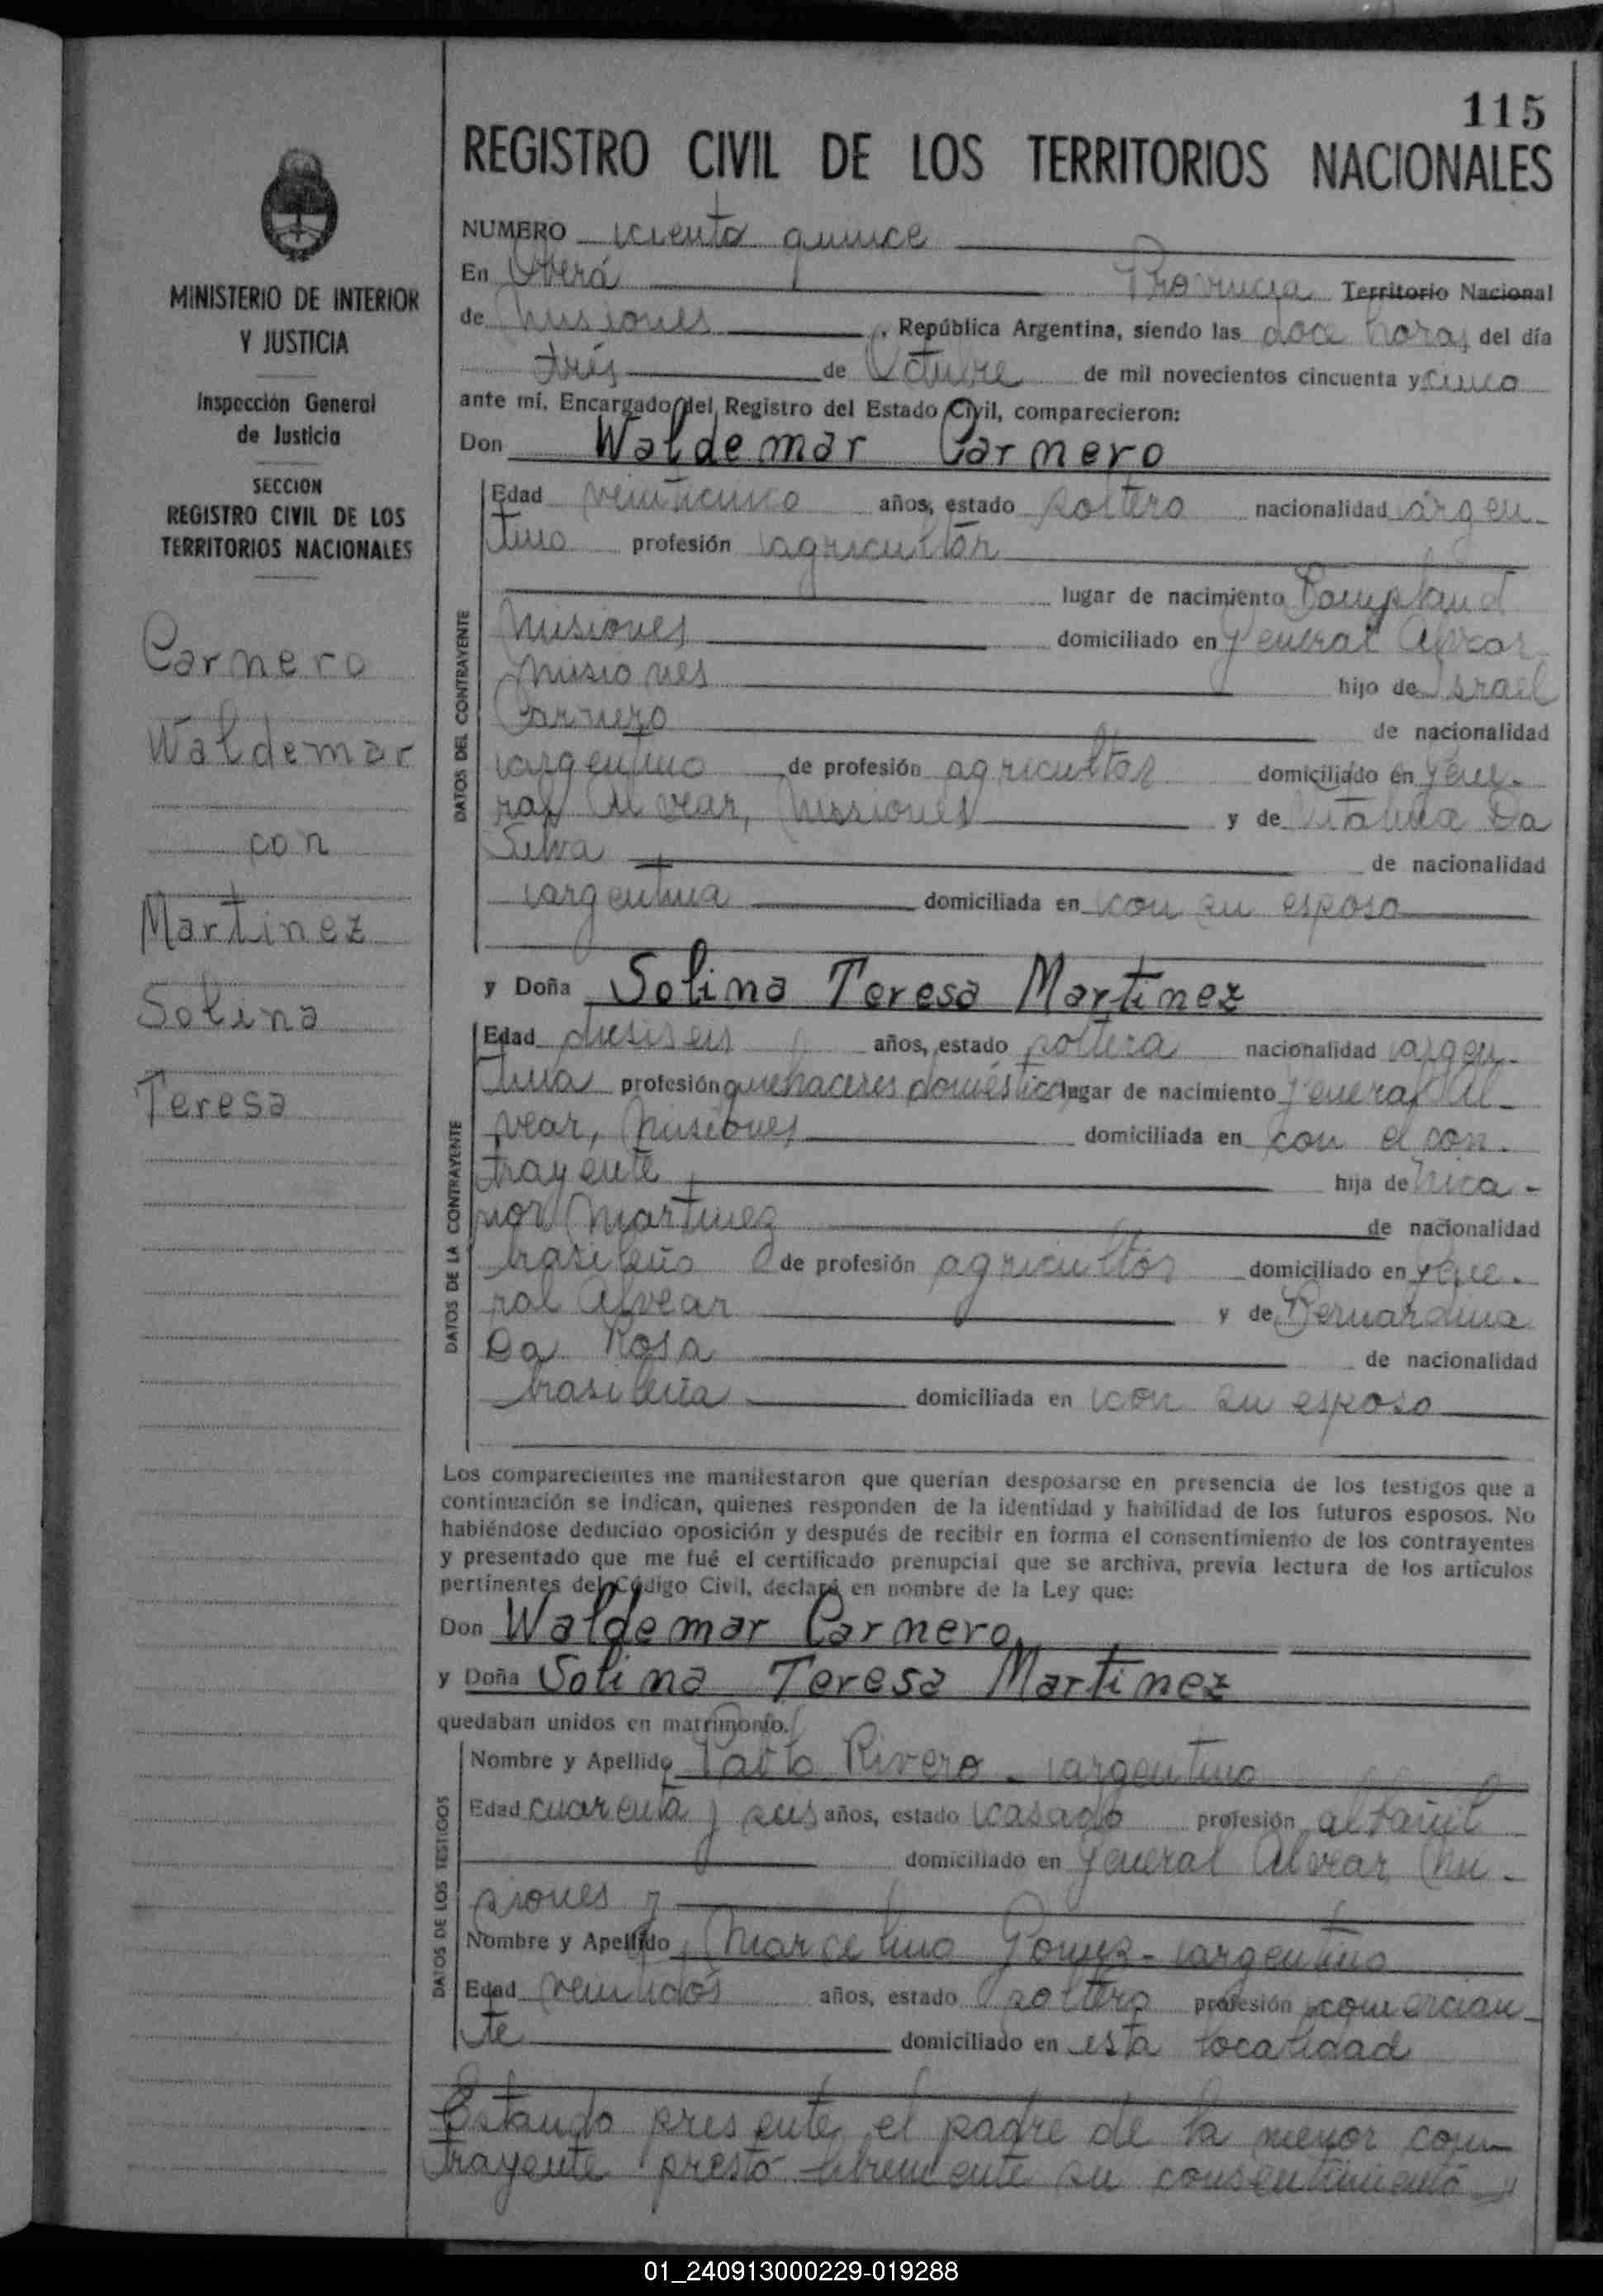 115
REGISTRO CIVIL DE LOS TERRITORIOS NACIONALES
MINISTERIO DE INTERIOR
Y JUSTICIA
Inspección General
de Justicia
SECCION
REGISTRO CIVIL DE LOS
TERRITORIOS NACIONALES
Carnero
Waldemar
con
Martinez
Solina
Teresa
NUMERO ciento quince
En Oberá Provincia Territorio Nacional
de Misiones, República Argentina, siendo las doce horas del día
trés de Octubre de mil novecientos cincuenta y cinco
ante mí, Encargado del Registro del Estado Civil, comparecieron:
Don Waldemar Carnero
DATOS DEL CONTRAYENTE
Edad veinticinco años, estado soltero nacionalidad argen-
tino profesión agricultor
lugar de nacimiento Bompland
Misiones domiciliado en General Alvear
Misiones hijo de Israel
Carnero de nacionalidad
argentino de profesión agricultor domiciliado en Gene-
ral Alvear, Misiones y de Da
Silva de nacionalidad
argentina domiciliada en con su esposo
y Doña Solina Teresa Martinez
DATOS DE LA CONTRAYENTE
Edad diesiseis años, estado soltera nacionalidad argen-
tina profesión quehaceres domésticos lugar de nacimiento General Al-
vear, Misiones domiciliada en con el con-
trayente hija de Nica-
nor Martinez de nacionalidad
brasileño de profesión agricultor domiciliado en Gene-
ral Alvear y de Bernardina
Da Rosa de nacionalidad
brasileña domiciliada en con su esposo
Los comparecientes me manifestaron que querían desposarse en presencia de los testigos que a
continuación se indican, quienes responden de la identidad y habilidad de los futuros esposos. No
habiéndose deducido oposición y después de recibir en forma el consentimiento de los contrayentes
y presentado que me fué el certificado prenupcial que se archiva, previa lectura de los artículos
pertinentes del Código Civil, declaré en nombre de la Ley que:
Don Waldemar Carnero
y Doña Solina Teresa Martinez
quedaban unidos en matrimonio.
DATOS DE LOS TESTIGOS
Nombre y Apellido Pablo Rivero - argentino
Edad cuarenta y seis años, estado casado profesión albañil
domiciliado en General Alvear Mi-
siones y
Nombre y Apellido Marcelino Gomez - argentino
Edad veintidós años, estado soltero profesión comercian-
te domiciliado en esta localidad
Estando presente el padre de la menor con-
trayente prestó libremente su consentimiento
01_240913000229-019288